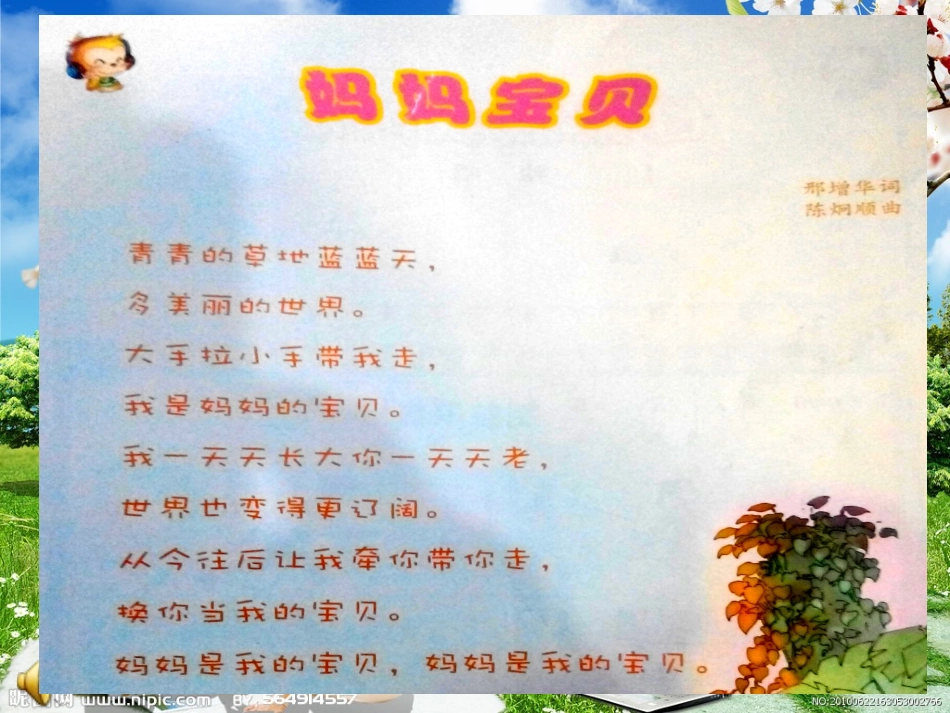 妈妈宝贝
邢增华词
陈炯顺曲
青青的草地蓝蓝天，
多美丽的世界。
大手拉小手带我走，
我是妈妈的宝贝。
我一天天长大你一天天老，
世界也变得更辽阔。
从今往后让我牵你带你走，
换你当我的宝贝。
妈妈是我的宝贝，妈妈是我的宝贝。
昵图网 www.nipic.com
NO:20100622163053002766